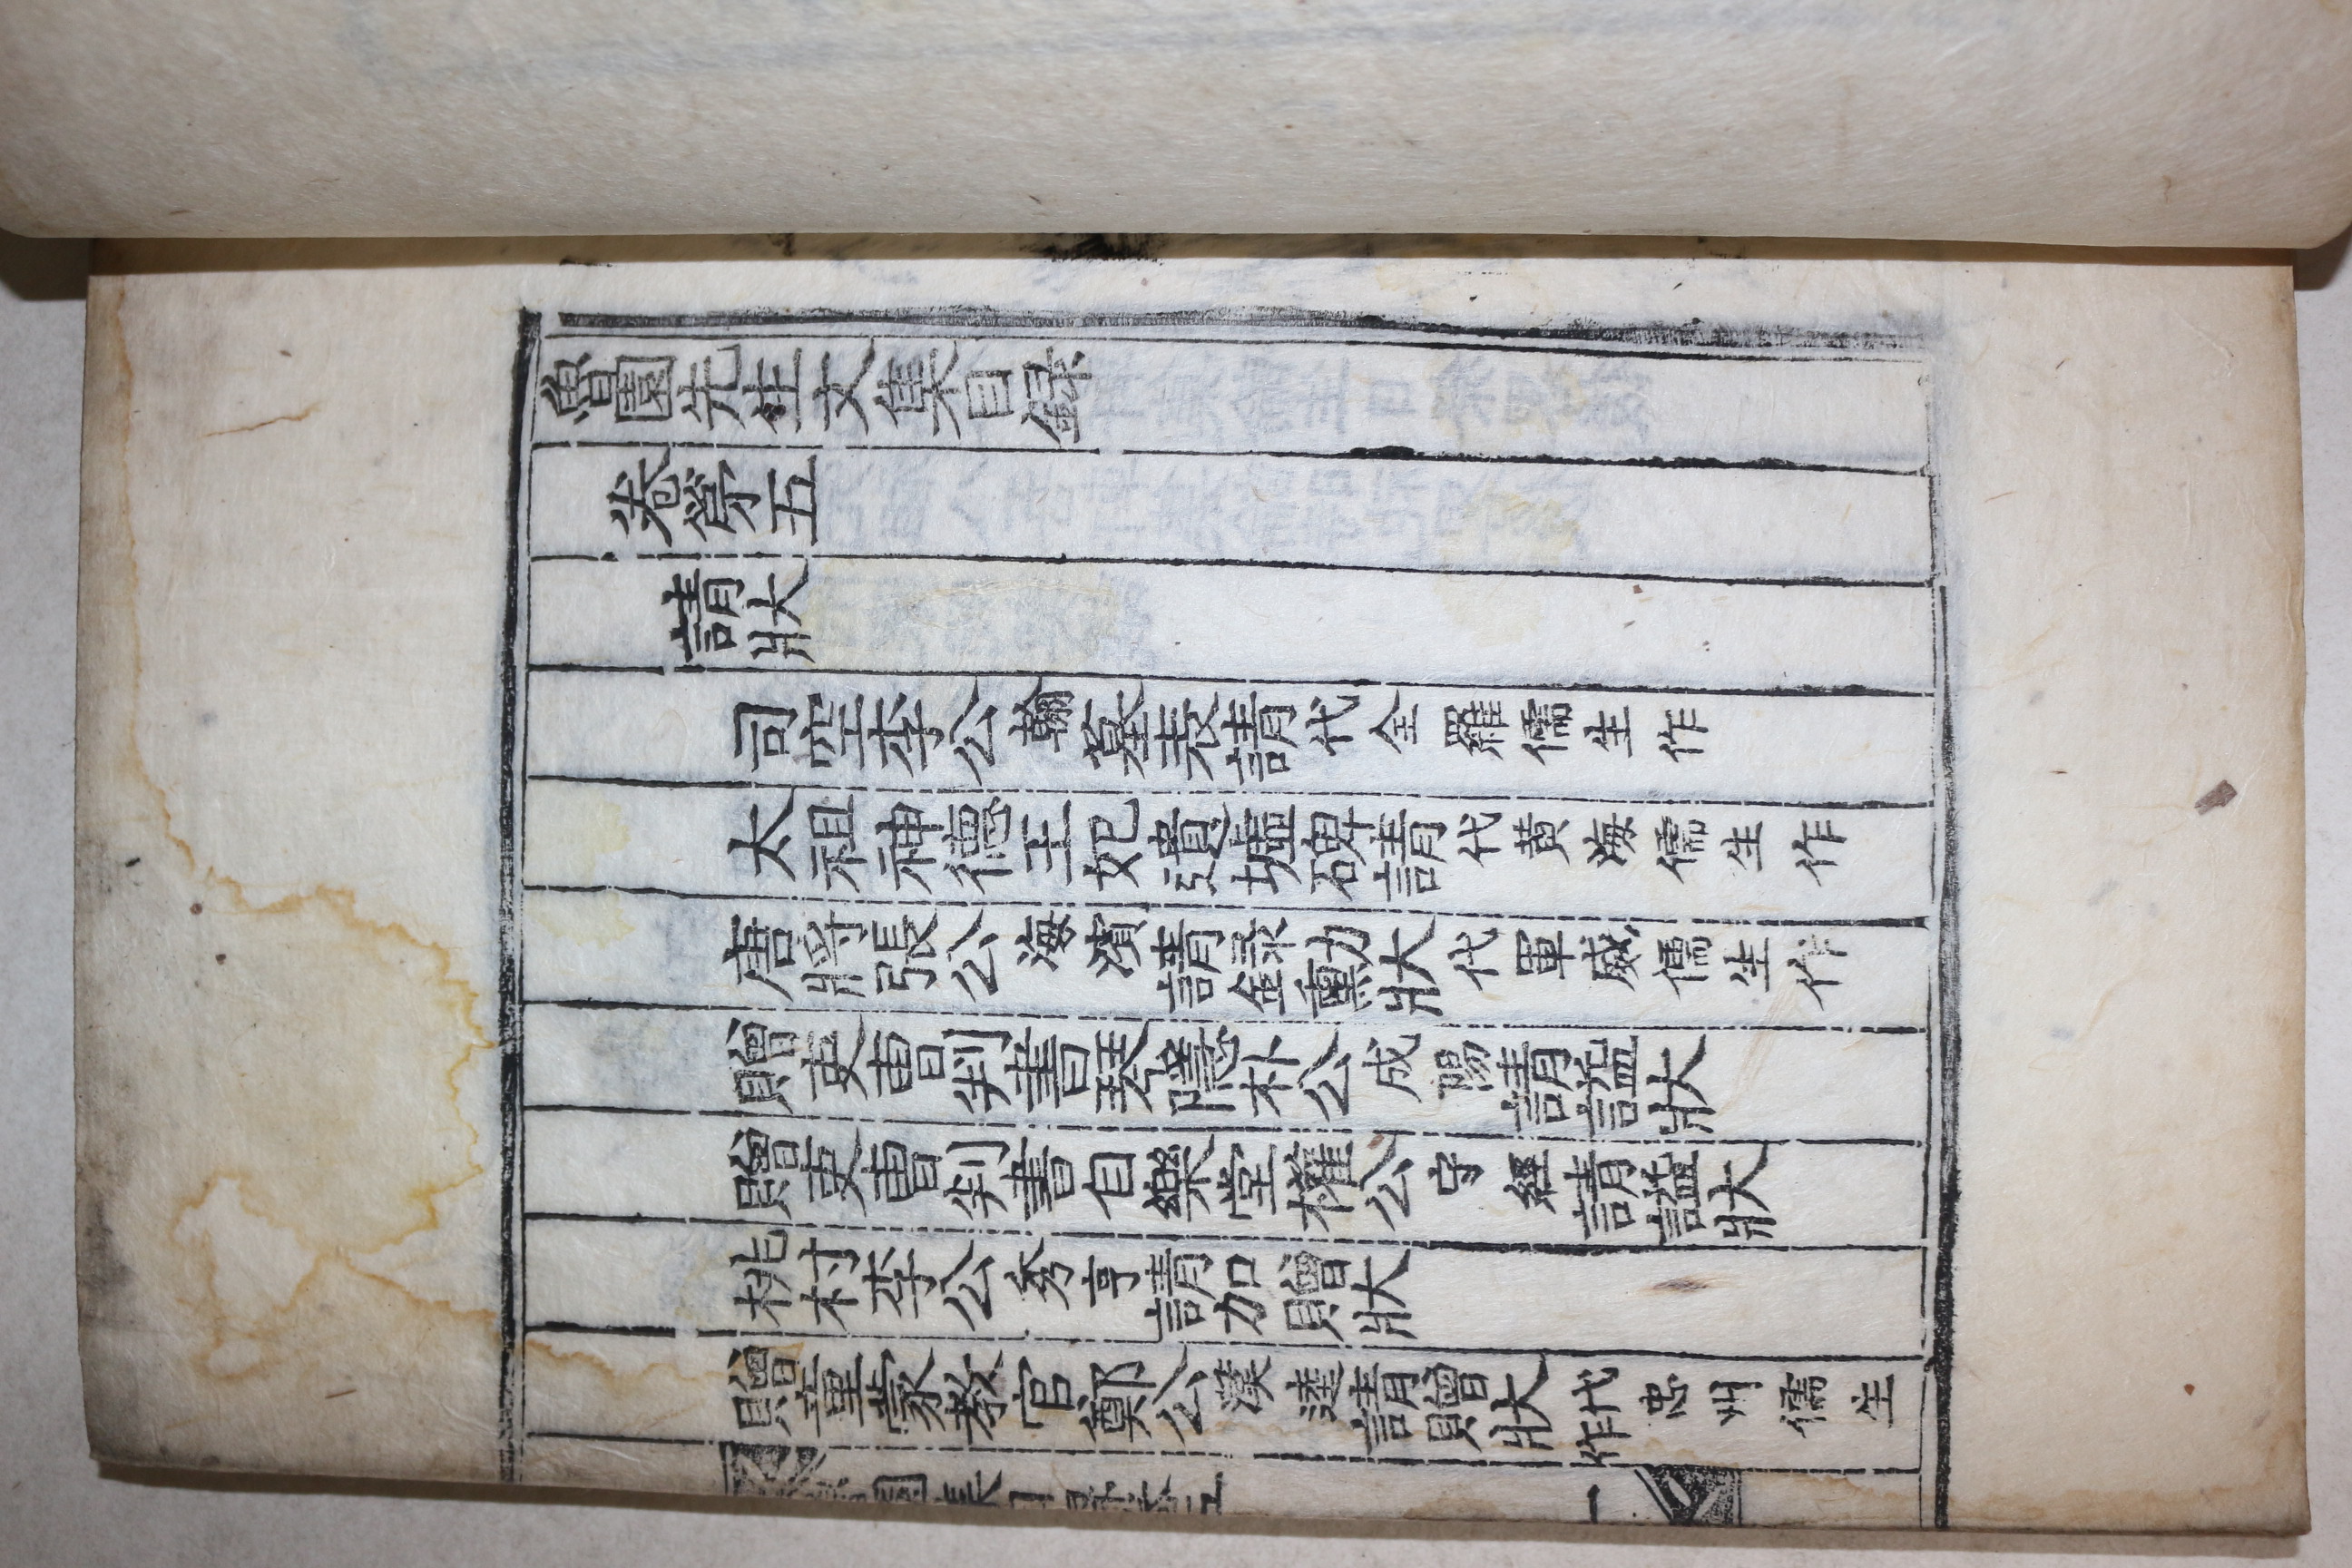 魯園先生文集目錄
卷㐧五
請狀
司空李公翰墓表請代全羅儒生作
太祖神德王妃遺墟碑請代黃海儒生作
唐將張公海濱請錄勳狀代軍威儒生作
贈吏曹判書琴隱朴公成陽請諡狀
贈吏曹判書自樂堂權公宇經請諡狀
桃村李公秀亨請加贈狀
贈童蒙敎官鄭公漢達請贈狀代忠州儒生作
園集目錄卷五 一